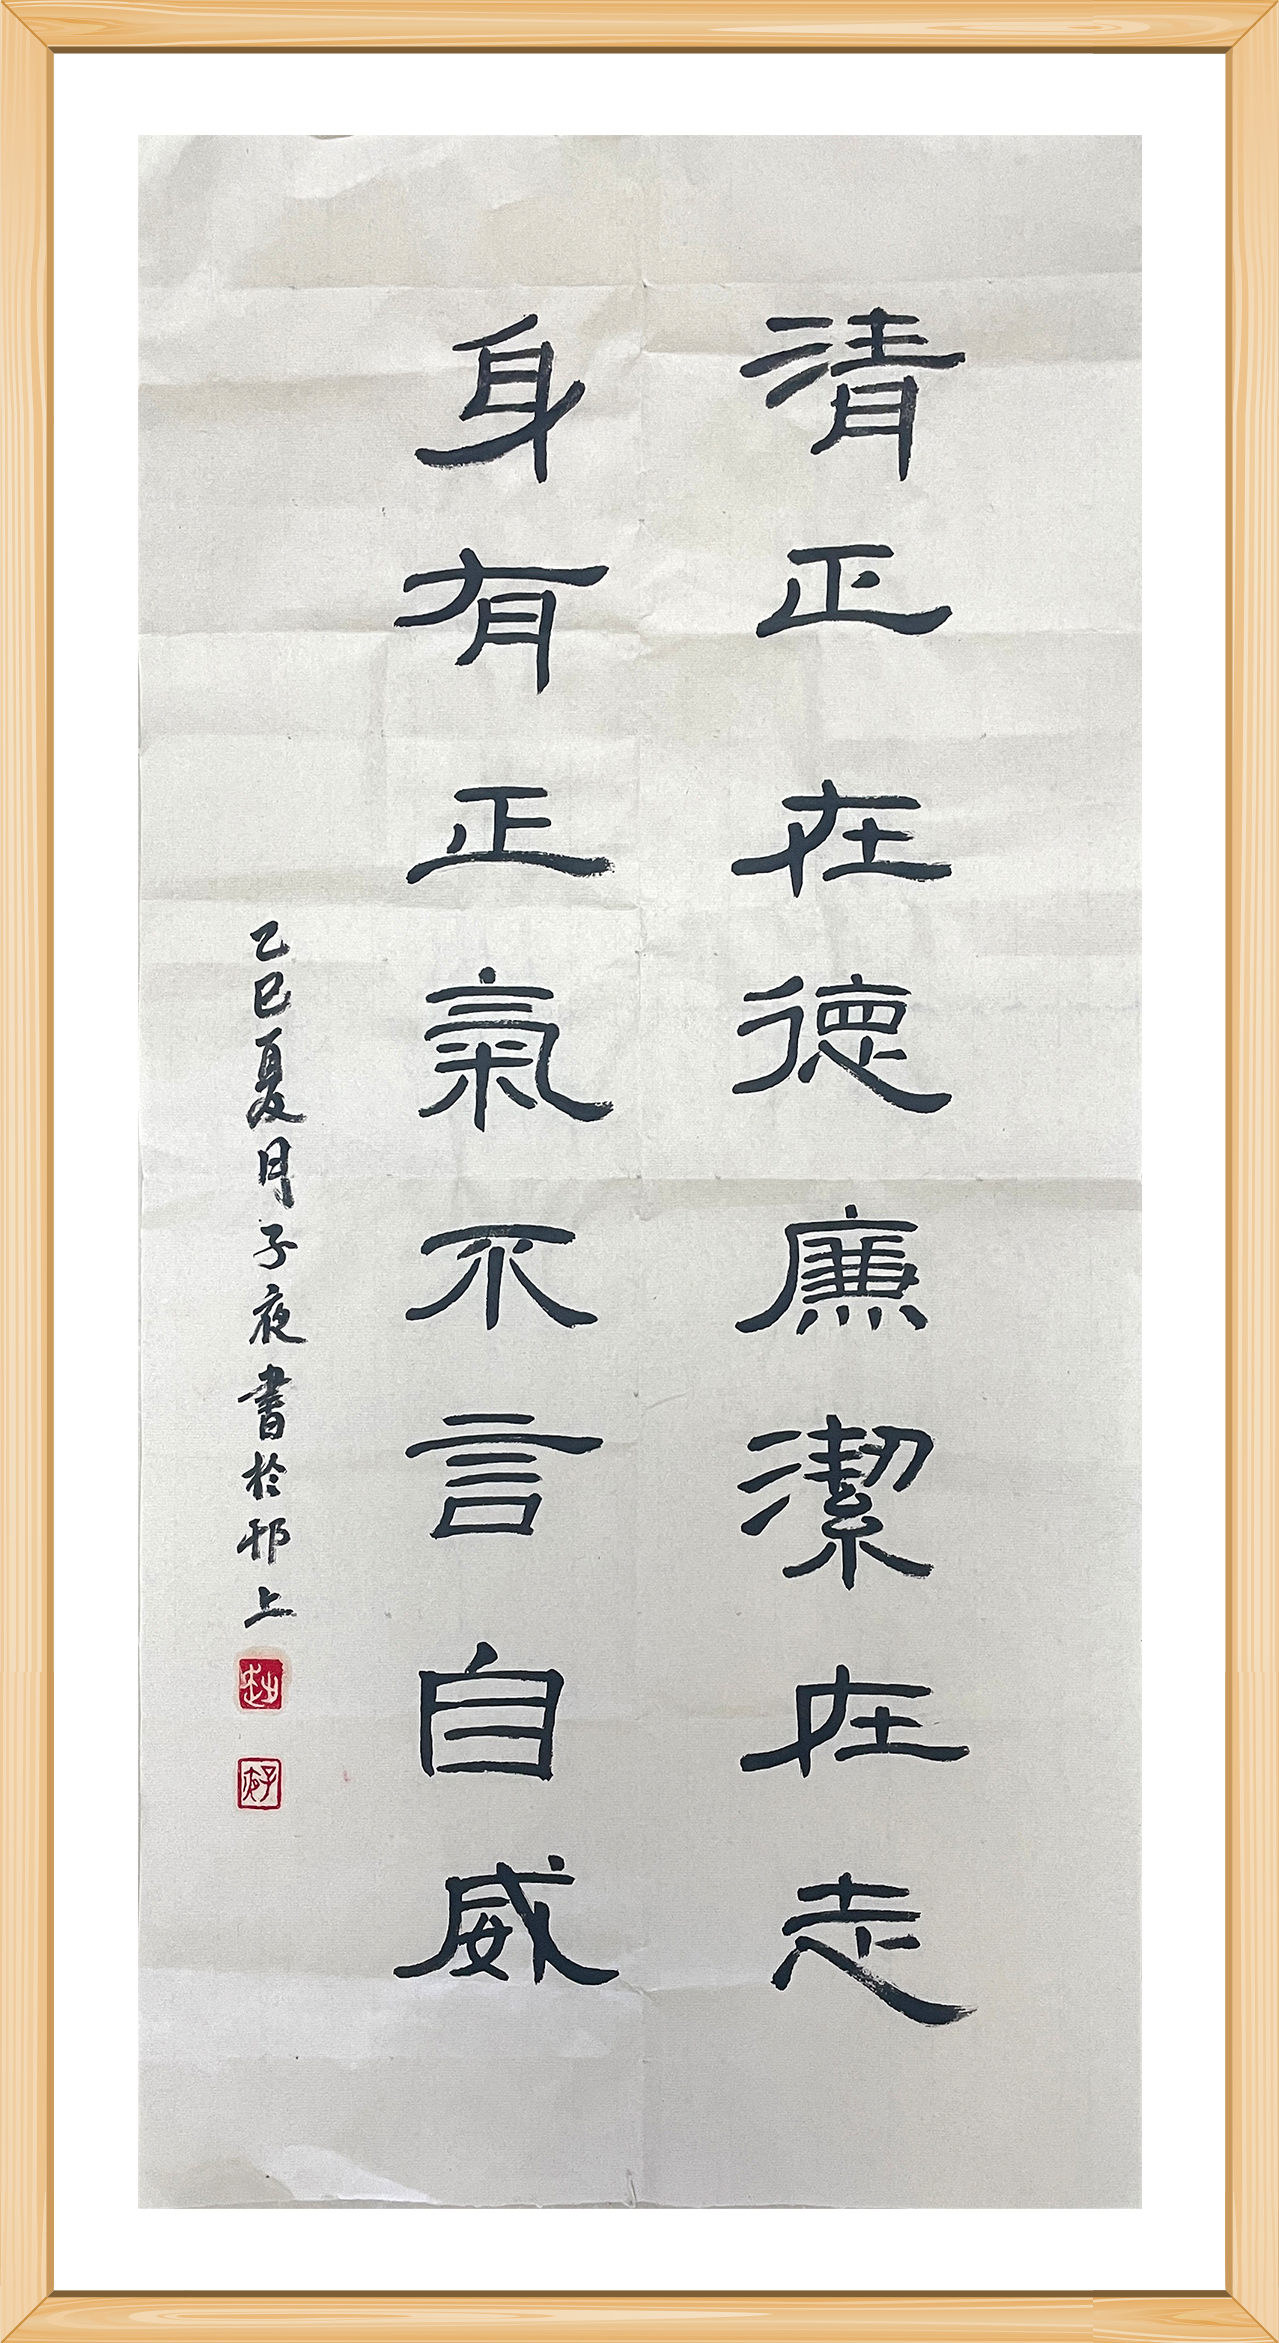 清正在德廉潔在走
身有正氣不言自威
乙巳夏月子夜書於邗上